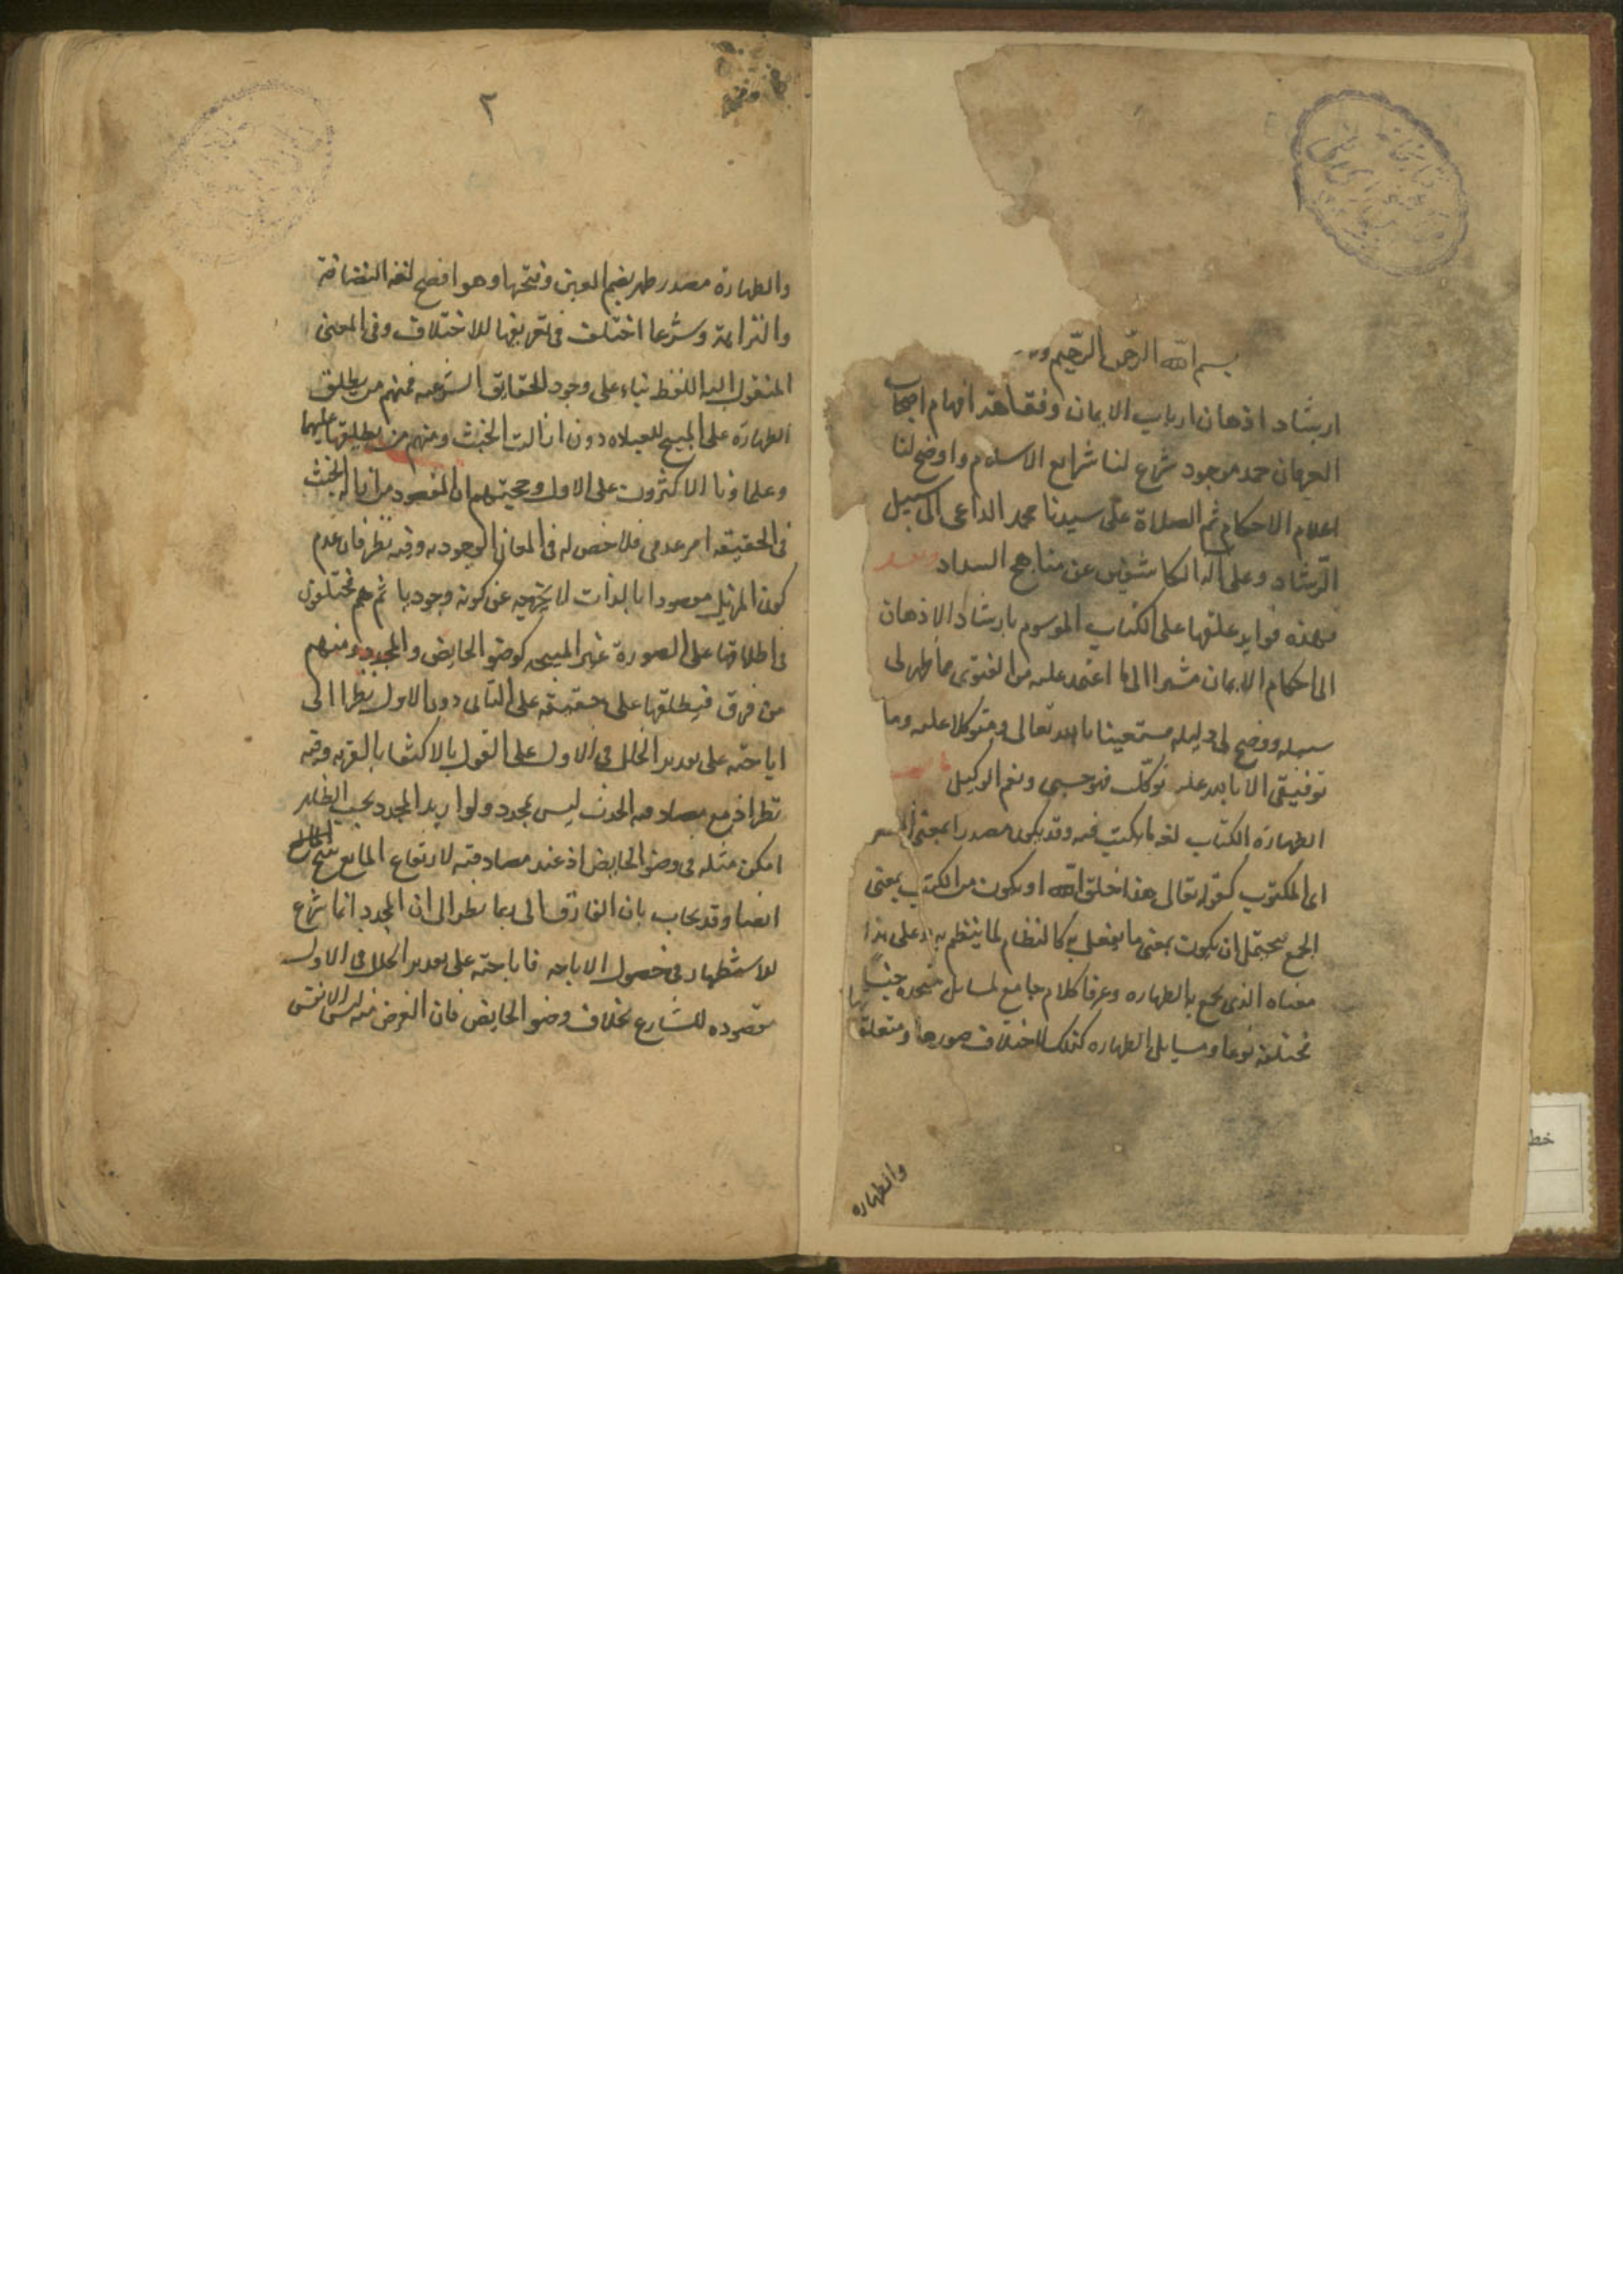 بسم الله الرحمن الرحيم وبه
ارشاد اذهان ارباب الايمان وفقاهة افهام اصحاب
العرفان حمد موجود شرع لنا شرايع الاسلام واوضح لنا
اعلام الاحكام ثم الصلاة على سيدنا محمد الداعى الى سبيل
الرشاد وعلى آله الكاشفين عن مناهج السداد وبعد
فهذه فوايد علقتها على الكتاب الموسوم بارشاد الاذهان
الى احكام الايمان مشيرا الى ما اعتمد عليه من الفتوى ما ظهر لى
سبيله ووضح لى دليله مستعينا بالله تعالى ومتوكلا عليه وما
توفيقى الا بالله عليه توكلت فهو حسبى ونعم الوكيل
الطهارة الكتاب لغة ما يكتب فيه وقد يكون مصدرا بمعنى
اى المكتوب كقوله تعالى هذا خلق الله او يكون من الكتب بمعنى
الجمع فيحتمل ان يكون بمعنى ما يفعل به كالنظام لما ينظم به وعلى هذا
معناه الذى يجمع به الطهاره وعرفا كلام جامع لمسايل متحده جنسا
مختلفة نوعا ومسايل الطهاره كذلك لاختلاف صورها ومتعلقاتها
والطهاره
٢
والطهارة مصدر طهر بضم العين وفتحها وهو افصح لغة النضافة
والنزاهة وشرعا اختلف فى تعريفها للاختلاف وفى المعنى
المنقول اليه اللفظ بناء على وجود الحقايق الشرعيه فمنهم من يطلق
الطهارة على المبيح للصلاه دون ازالت الخبث ومنهم من يطلقها عليهما
وعلماؤنا الاكثرون على الاول وحجتهم ان المقصود من ازالة الخبث
فى الحقيقه امر عدمى فلا خص له فى المعانى الوجوديه وفيه نظر فان عدم
كون المزيل مقصودا بالذات لا يخرجه عن كونه وجوديا ثم هم مختلفون
فى اطلاقها على الصورة غير المبيحه كوضو الحايض والمجدد ومنهم
من فرق فيطلقها على حقيقه على الثانى دون الاول نظرا الى
اباحته على تقدير الخلل فى الاول على القول بالاكتفا بالقربه وفيه
نظر اذ مع مصادفه الحدث ليس بمجدد ولو اريد المجدد بحسب الظاهر
امكن مثله فى وضو الحايض اذ عند مصادفته لارتفاع المانع يبيح
ايضا وقد يجاب بان الفارق انما ينظر الى ان المجدد انما شرع
للاستظهار فى حصول الاباحه فاباحته على تقدير الخلل فى الاول
مقصوده للشارع بخلاف وضو الحايض فان الغرض منه ليس الا نفس